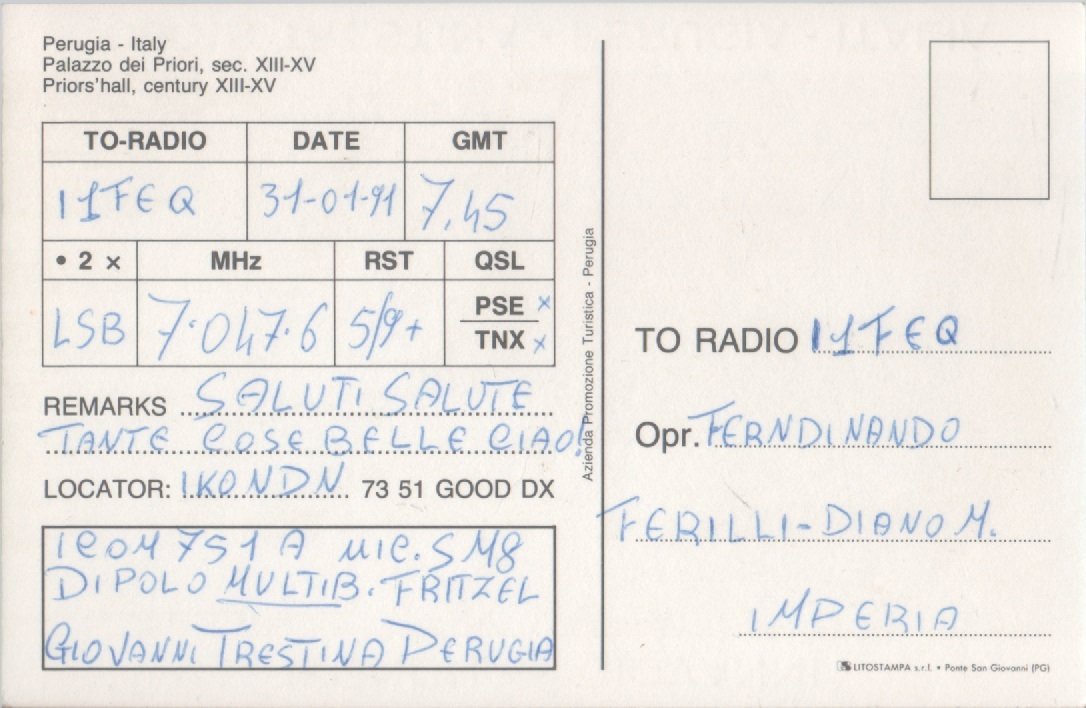 Perugia - Italy
Palazzo dei Priori, sec. XIII-XV
Priors'hall, century XIII-XV
TO-RADIO DATE GMT
I1FEQ 31-01-91 7,45
• 2 × MHz RST QSL
LSB 7.047.6 5/9+ PSE x
TNX x
REMARKS SALUTI SALUTE
TANTE COSE BELLE CIAO.
LOCATOR: IK0NDN 73 51 GOOD DX
ICOM 751A MIC. SM8
DIPOLO MULTIB. FRITZEL
GIOVANNI TRESTINA PERUGIA
Azienda Promozione Turistica - Perugia
TO RADIO I1FEQ
Opr. FERNDINANDO
FERILLI-DIANO M.
IMPERIA
LITOSTAMPA s.r.l. • Ponte San Giovanni (PG)